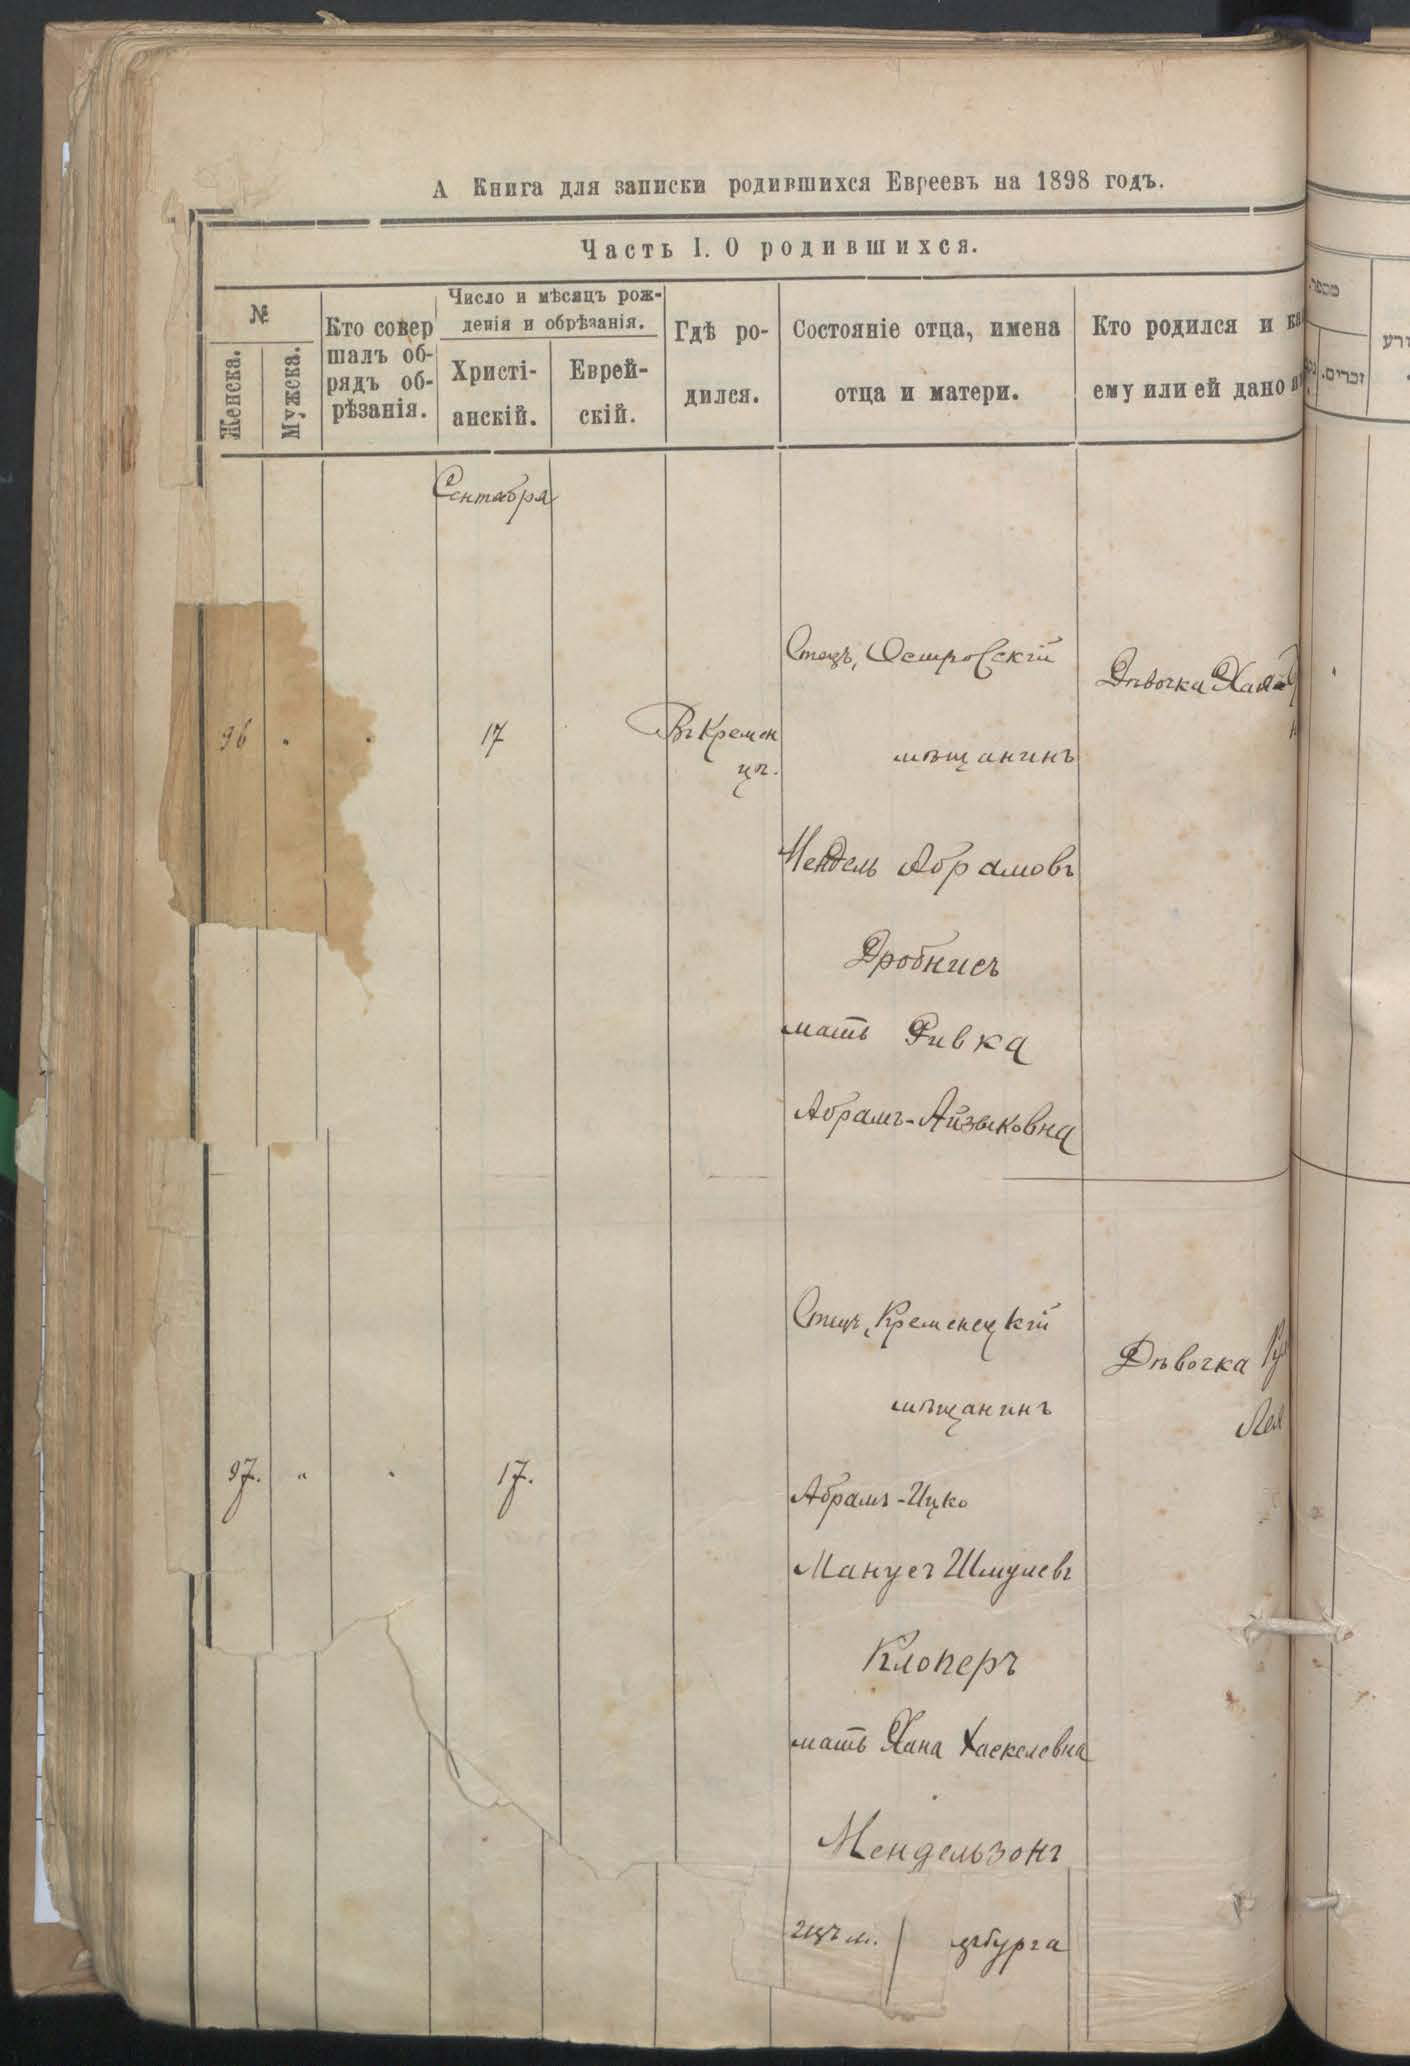 А Книга для записки родившихся Евреевъ на 1898 годъ.
Часть I. О родившихся.
№
Женска.
Мужска.
Кто совер
шалъ об-
рядъ об-
рѣзанія.
Число и мѣсяцъ рож-
денія и обрѣзанія.
Христі-
анскій.
Еврей-
скій.
Гдѣ ро-
дился.
Состояніе отца, имена
отца и матери.
Кто родился и
ему или ей дано
זכרים.
Сентабря
96
17
Въ Кремен
цѣ.
Отецъ, Островскій
мѣщанинъ
Мендель Абрамовъ
Дробнисъ
мать Ривка
Абрамъ-Айзыковна
Дѣвочка Хая
97.
17.
Отецъ, Кременецкій
мѣщанинъ
Абрамъ-Ицко
Манусъ Шмулевъ
Клоперъ
мать Хана Хаскелевна
Мендельзонъ
Дѣвочка
Лея
цбурга